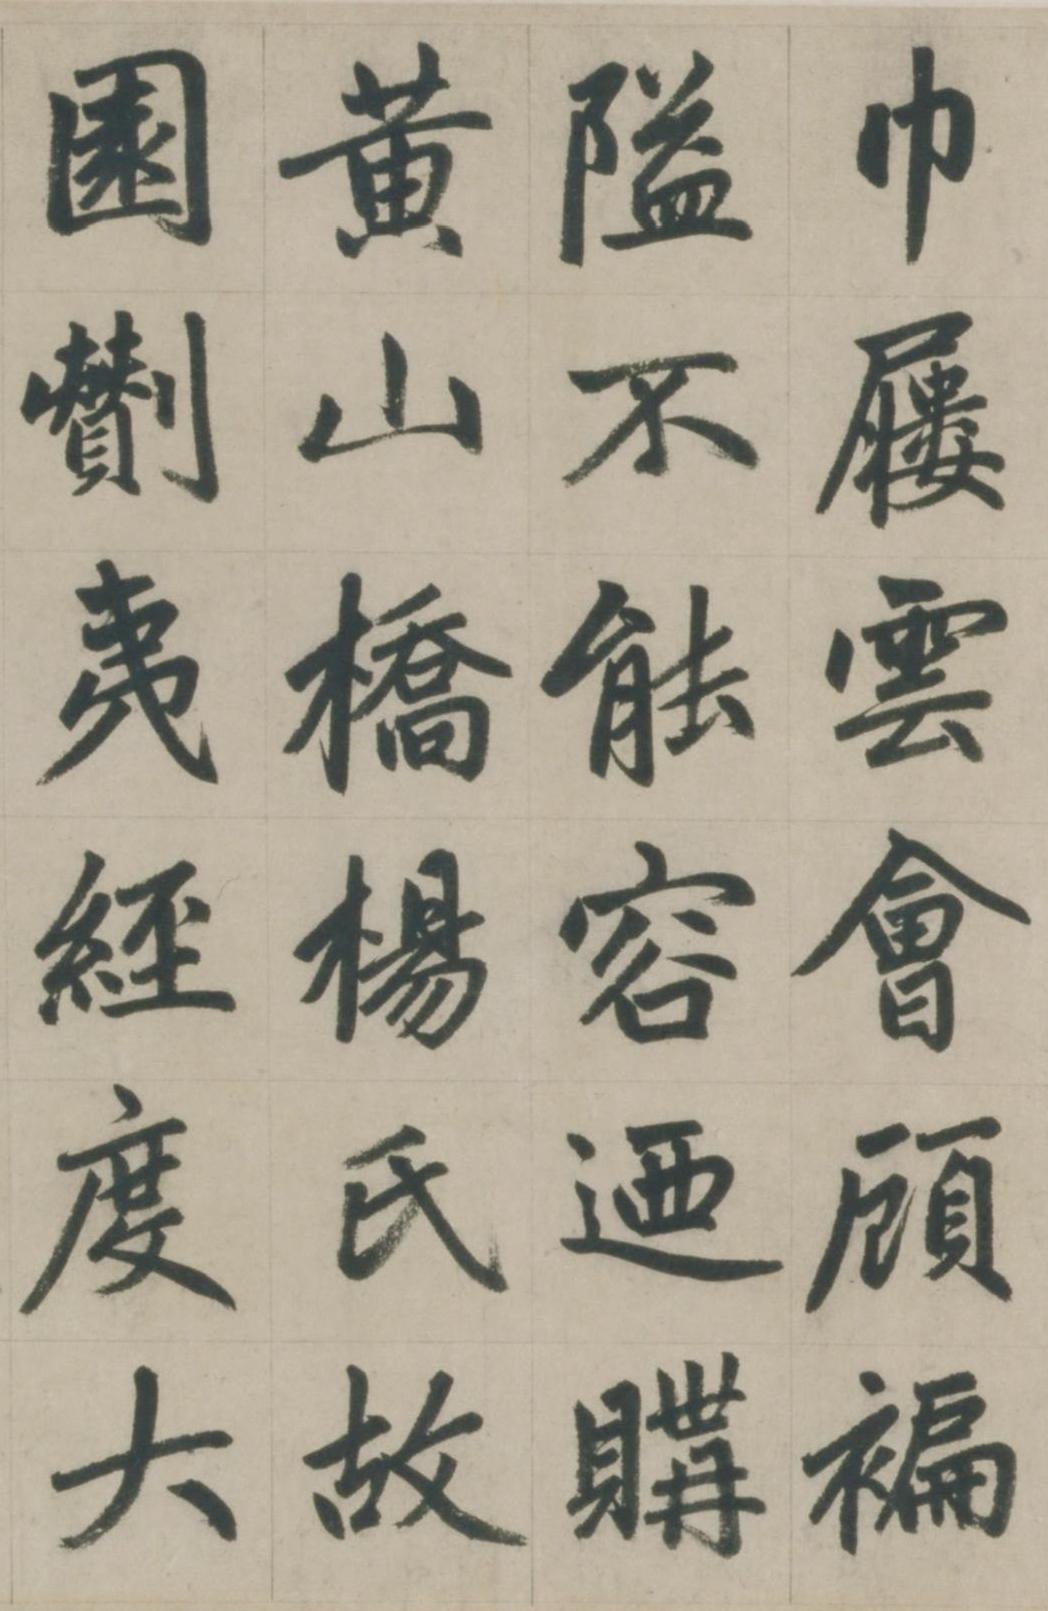 巾屨雲會顧褊
隘不能容迺購
黃山橋楊氏故
園劗夷經度大